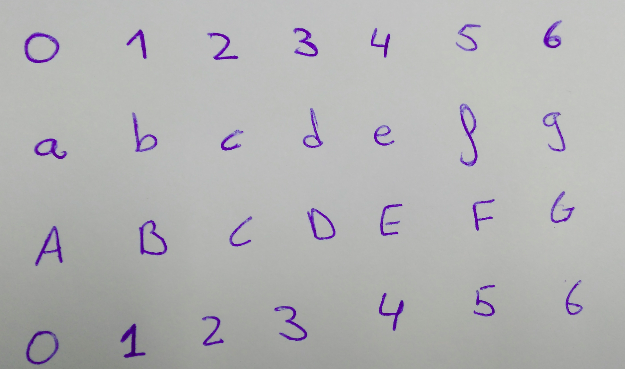 0 1 2 3 4 5 6
a b c d e f g
A B C D E F G
0 1 2 3 4 5 6